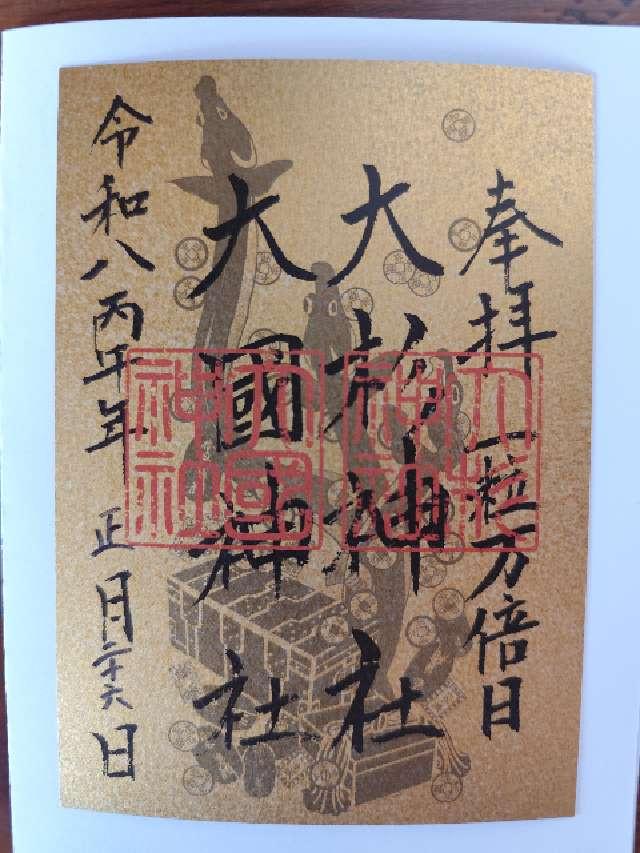 奉拝 一粒万倍日
大杉神社
大國神社
令和八丙午年 正月二十六日
大杉神社
大國神社